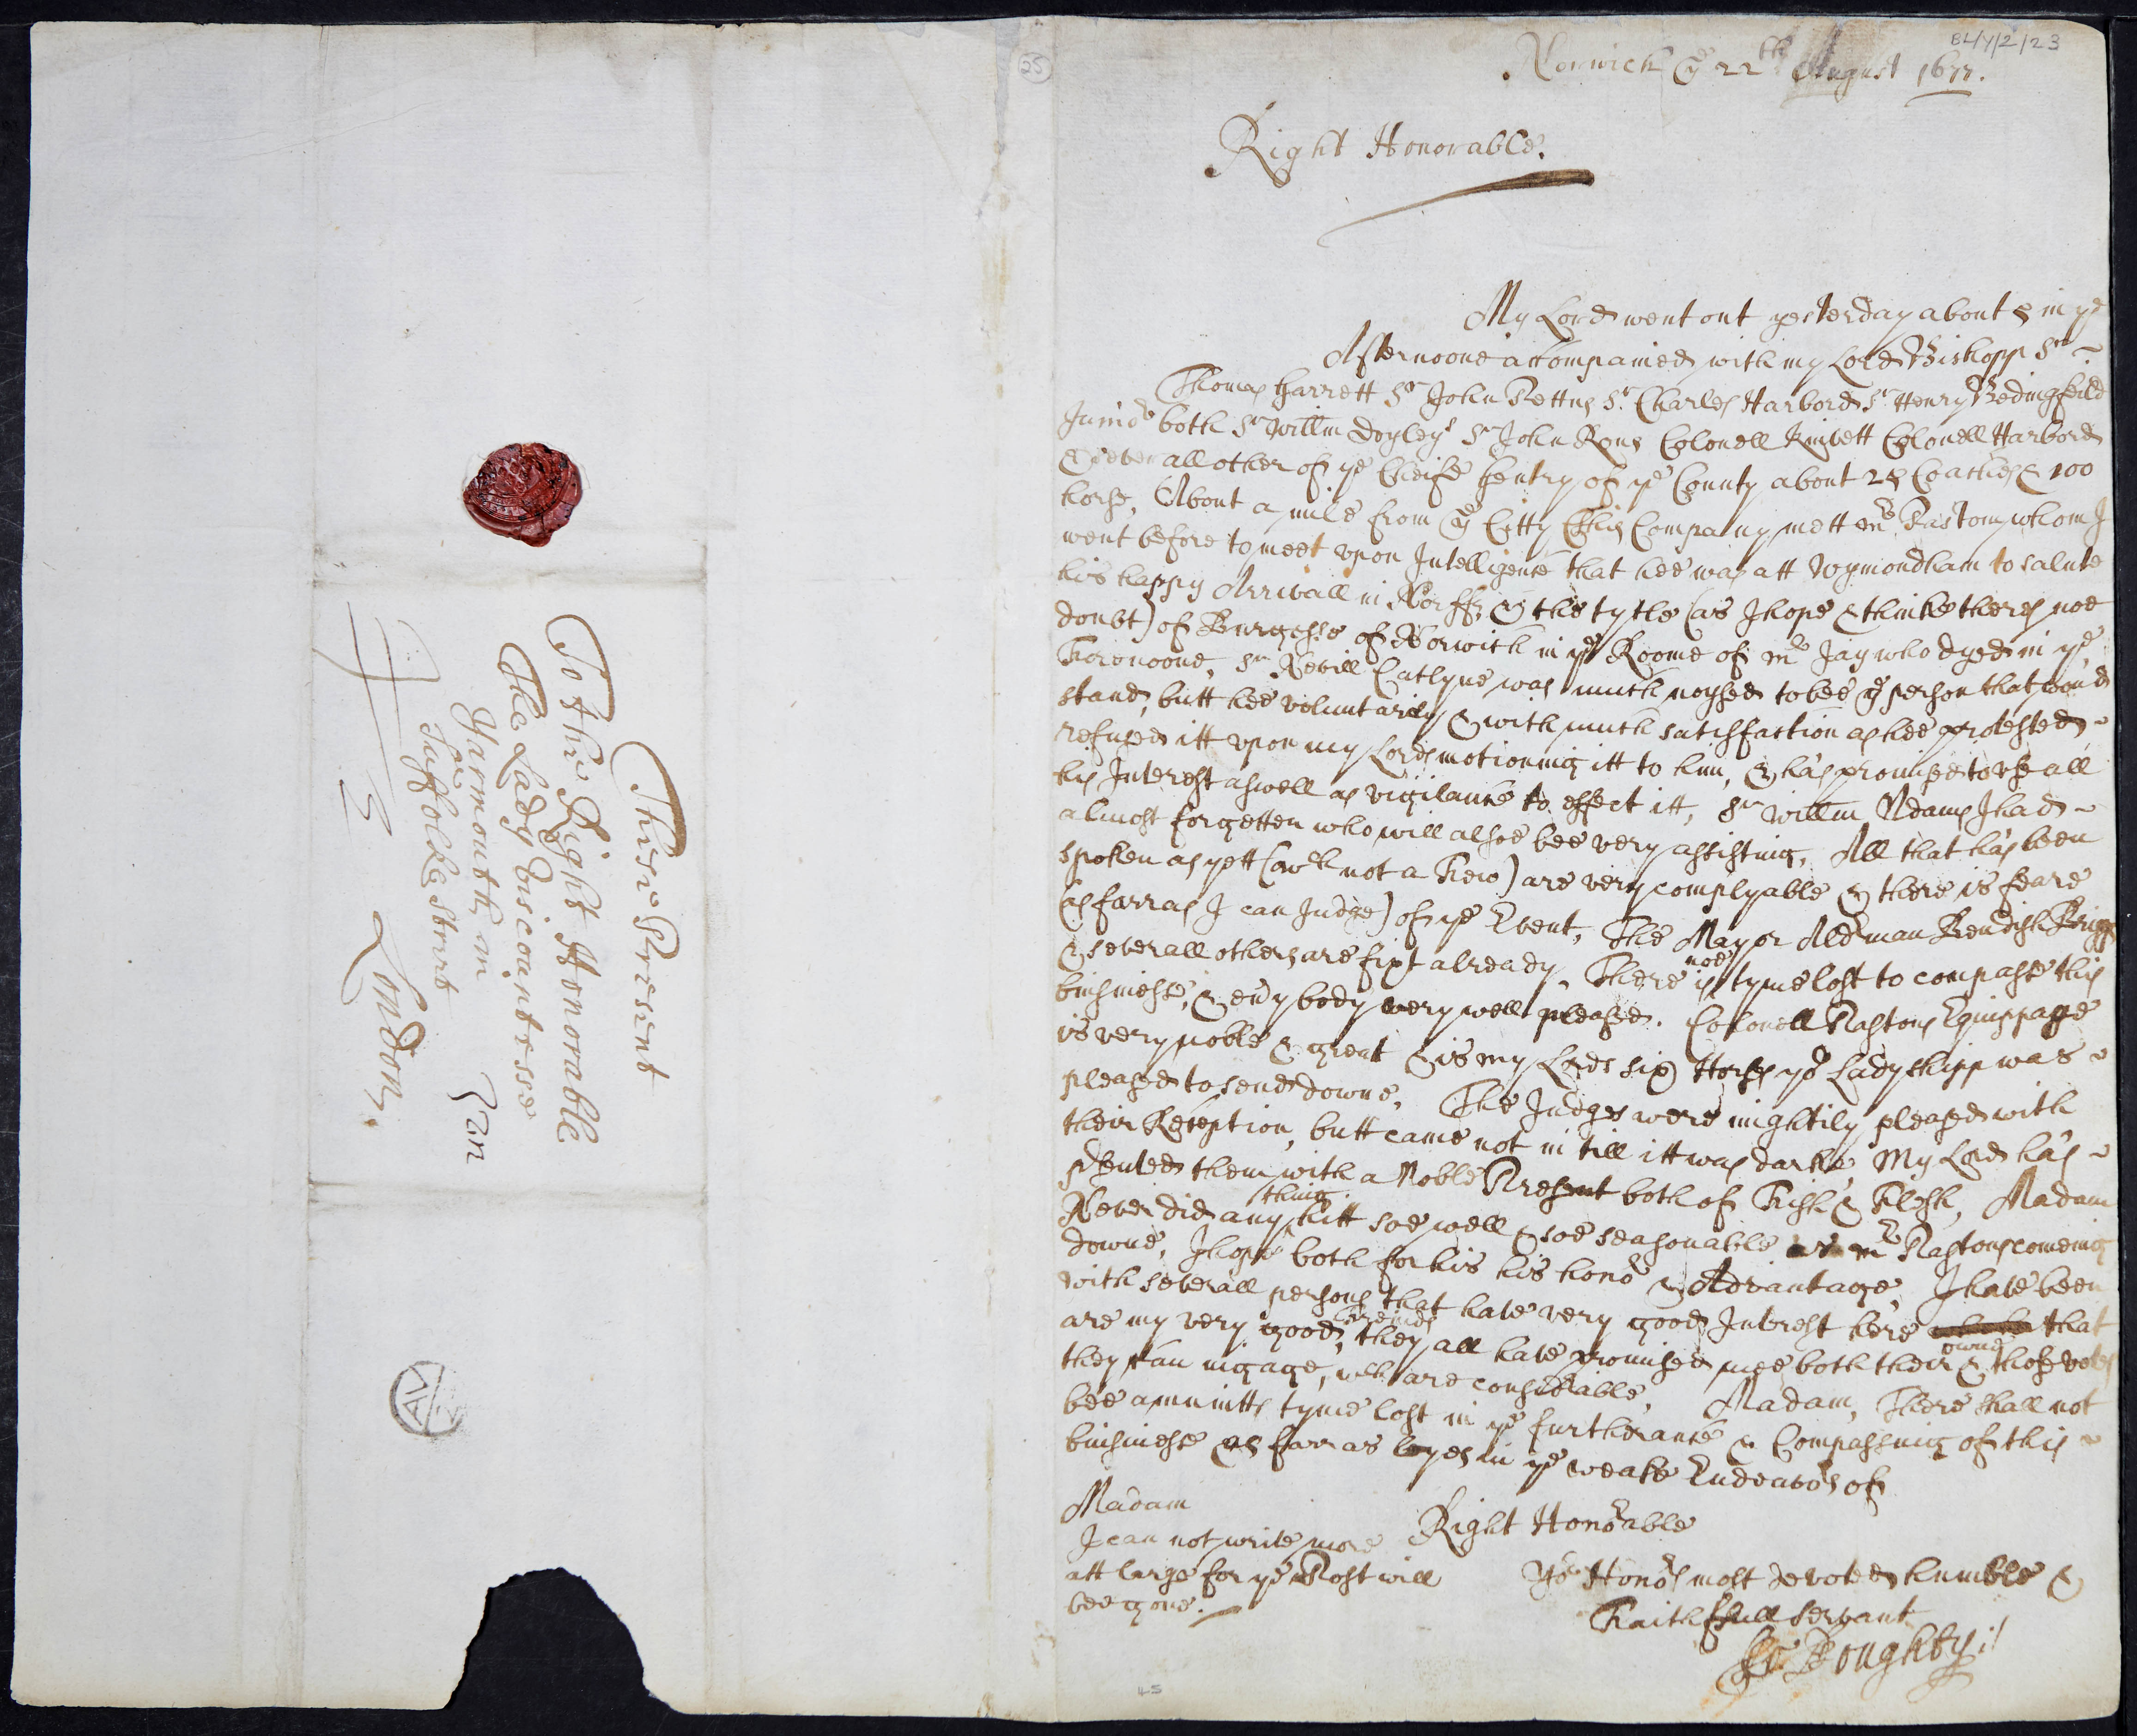 BL/Y/2/23
25
Norwich ye 22th August 1677.
Right Honorable.
My Lord went out yesterday about 5 in ye
Afternoone accompained with my Lord Bishopp Sr
Thomas Garrett Sr John Pettus Sr Charles Harbord Sr Henry Bedingfeild
Junior both Sr Willm Doyleys Sr John Rous Colonell Knivett Colonell Harbord
& severall other of ye Cheife Gentry of ye County about 25 Coaches & 100
horse, About a mile from ye Citty this Company mett Mr Paston, whom I
went before to meet upon Intelligence that hee was att Wymondham to salute
his happy Arrivall in Norff, & the tytle (as I hope & thinke theres noe
doubt) of Burgesse of Norwich in ye Roome of Mr Jay who dyed in ye
Forenoone, Sr Nevill Catlyne was much noysed to bee ye person that would
stand, butt hee voluntarily & with much satisfaction as hee protested
refused itt upon my Lords motioning itt to him, & has promised to use all
his Interest aswell as vigilance to effect itt, Sr Willm Adams I had
almost forgetten who will alsoe bee very assisting, All that has been
spoken as yett (wch not a Few) are very complyable & there is feare
(as farr as I can Judge) of ye Event, The Mayor Aldman Bendish Briggs
& severall others are fixt already. There is noe tyme lost to compasse this
businesse, & every body very well pleased. Colonell Pastons Equippage
is very noble & great & is my Lords six Horses yor Ladyshipp was
pleased to send downe, The Judges were mightily pleased with
their Reception, butt came not in till itt was darke, My Lord has
psented them with a Noble Present both of Fish & Flesh, Madam
Never did any thing hitt soe well & soe seasonable as Mr Pastons comeing
downe, I hope both for his his honor & Advantage, I have been
with severall persons that have very good Interest here that
are my very good freinds, they all have promised mee both their owne & those votes
they can ingage, wch are considerable, Madam, There shall not
bee a minitts tyme lost in ye furtherance & Compassing of this
businesse as farr as lyes in ye weake Endeavors of
Madam
I can not write more
att large for ye Post will
bee gone.
Right Honorable
Yor Honors most devoted humble &
Faithfull Servant
Jo: Doughty:
45
These Present
To the Right Honorable
The Lady Viscountesse
Yarmouth, in
Suffolke Street
in
London.
3